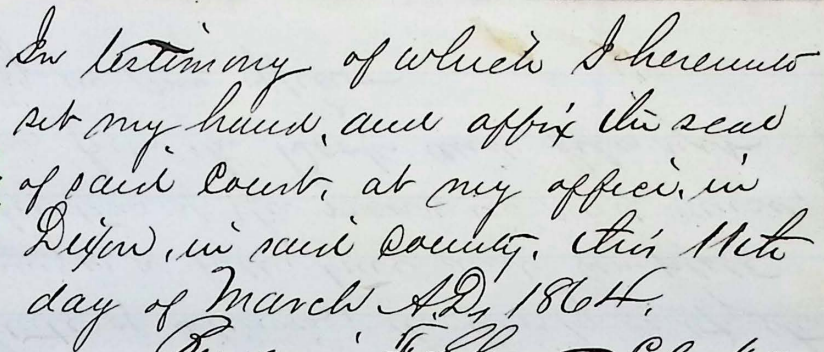 In testimony of which I hereunto
set my hand, and affix the seal
of said Court, at my office, in
Dixon, in said County, this 11th
day of March A.D., 1864.